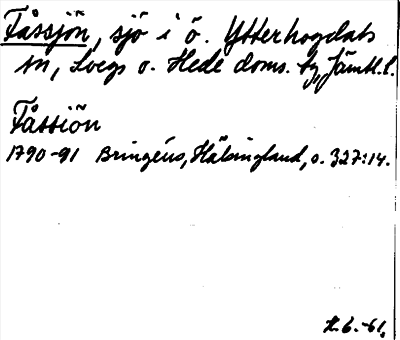 Fåssjön, sjö i ö. Ytterhogdals
sn, Svegs o. Hede doms. tg, Jämtl. l.
Fåssiön
1790-91 Bringéus, Hälsingland, s. 327:14.
6.-61.